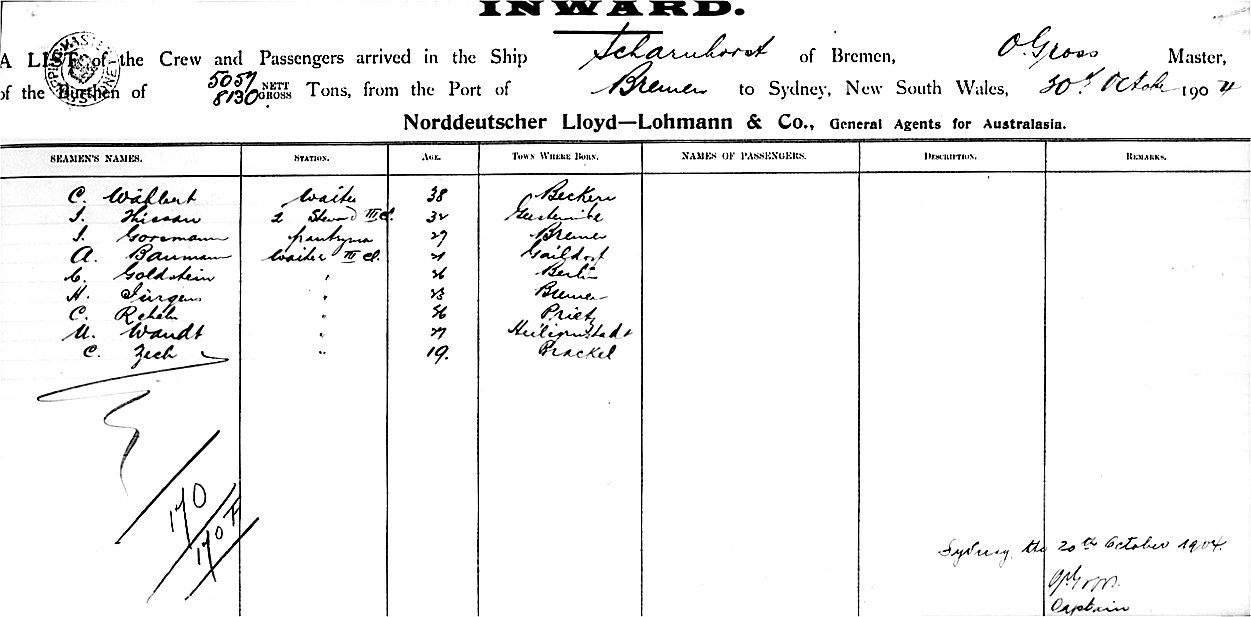 INWARD.
A LIST of the Crew and Passengers arrived in the Ship Scharnhorst of Bremen, O Gross Master,
of the Burthen of 5057 NETT 8130 GROSS Tons, from the Port of Bremen to Sydney, New South Wales, October 1904
Norddeutscher Lloyd—Lohmann & Co., General Agents for Australasia.
SEAMEN'S NAMES. STATION. AGE. TOWN WHERE BORN. NAMES OF PASSENGERS. DESCRIPTION. REMARKS.
C. Waiter 38
2 Steward III Cl. 32
Gorsmann 29 Bremen
A. Bauman Waiter III Cl. 21 Gaildorf
Goldstein " 26 Berlin
H. Jürgens " 23 Bremen
C. " 26
Wandt " 27 Heiligenstadt
C. Zech " 19. Brackel
170
170 F
Sydney, the 20th October 1904.
Captain